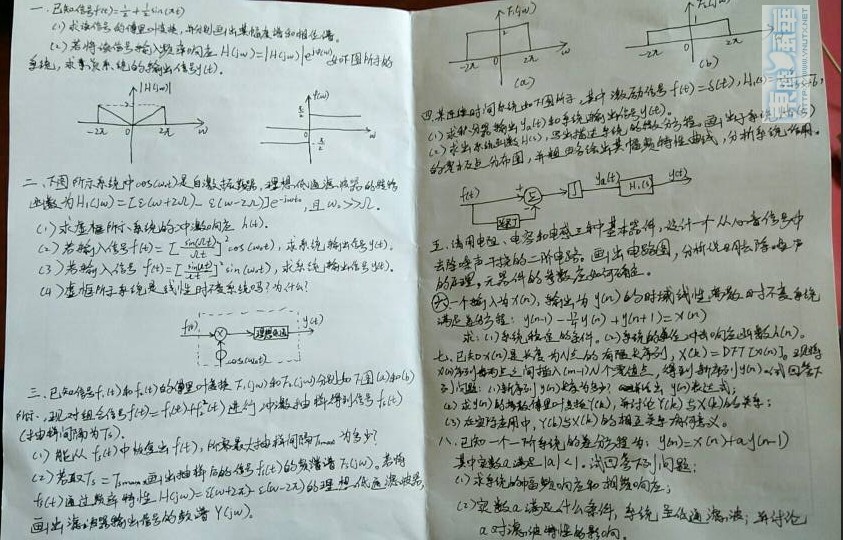 一、已知信号f(t)=½+½sin(πt)
(1)求该信号的傅里叶变换,并分别画出其幅度谱和相位谱。
(2)若将该信号输入频率响应H(jω)=|H(jω)|e^{jφ(ω)}如下图所示的
系统,求系统的输出信号y(t)。
|H(jω)|
-2π 0 2π ω
φ(ω)
π/2
0 ω
-π/2
二、下图所示系统中cos(ω₀t)是自激振荡器,理想低通滤波器的转移
函数为H₁(jω)=[ε(ω+2Ω)-ε(ω-2Ω)]e^{-jωt₀},且ω₀>>Ω。
(1)求虚框所示系统的冲激响应h(t)。
(2)若输入信号f(t)=[sin(Ωt)/Ωt]²cos(ω₀t),求系统输出信号y(t)。
(3)若输入信号f(t)=[sin(Ωt)/Ωt]²sin(ω₀t),求系统输出信号y(t)。
(4)虚框所示系统是线性时不变系统吗?为什么?
f(t) × 理想低通 y(t)
cos(ω₀t)
三、已知信号f₁(t)和f₂(t)的傅里叶变换F₁(jω)和F₂(jω)分别如下图(a)和(b)
所示,现对组合信号f(t)=f₁(t)+f₂²(t)进行冲激抽样得到信号fs(t)
(抽样间隔为Ts)。
(1)能从fs(t)中恢复出f(t),所需最大抽样间隔Tsmax为多少?
(2)若取Ts=Tsmax画出抽样后的信号fs(t)的频谱Fs(jω)。若将
fs(t)通过频率特性H(jω)=ε(ω+2π)-ε(ω-2π)的理想低通滤波器,
画出滤波器输出信号的频谱Y(jω)。
F₁(jω)
2
-2π 0 2π ω
(a)
F₂(jω)
1
-2π 0 2π ω
(b)
四、某连续时间系统如下图所示,其中激励信号f(t)=δ(t),H₁(s)=
(1)求积分器输出yₐ(t)和系统输出信号y(t)。
(2)求出系统函数H(s),写出描述系统的微分方程。画出子系统
的零极点分布图,并粗略绘出其幅频特性曲线,分析系统作用。
f(t) + Σ ∫ yₐ(t) H₁(s) y(t)
五、请用电阻、电容和电感三种基本器件,设计一个从心音信号中
去除噪声干扰的二阶电路。画出电路图,分析说明去除噪声
的原理。元器件的参数应如何确定。
六、一个输入为x(n),输出为y(n)的时域线性离散时不变系统
满足差分方程:
求:(1)系统稳定的条件。(2)系统的单位冲击响应函数h(n)。
七、已知x(n)是长度为N点的有限长序列,X(k)=DFT[x(n)]。现将
x(n)序列每两点之间插入(m-1)个零值点,得到新序列y(n)。试回答下
列问题:(1)新序列y(n)长度为多少?给出y(n)表达式;
(2)求y(n)的离散傅里叶变换Y(k),并讨论Y(k)与X(k)的关系;
(3)在实际应用中,Y(k)与X(k)的相互关系有何意义。
八、已知一个一阶系统的差分方程为:y(n)=x(n)+ay(n-1)
其中实数a满足|a|<1。试回答下列问题:
(1)求系统的幅频响应和相频响应;
(2)实数a满足什么条件,系统呈低通滤波;并讨论
a对滤波特性的影响。